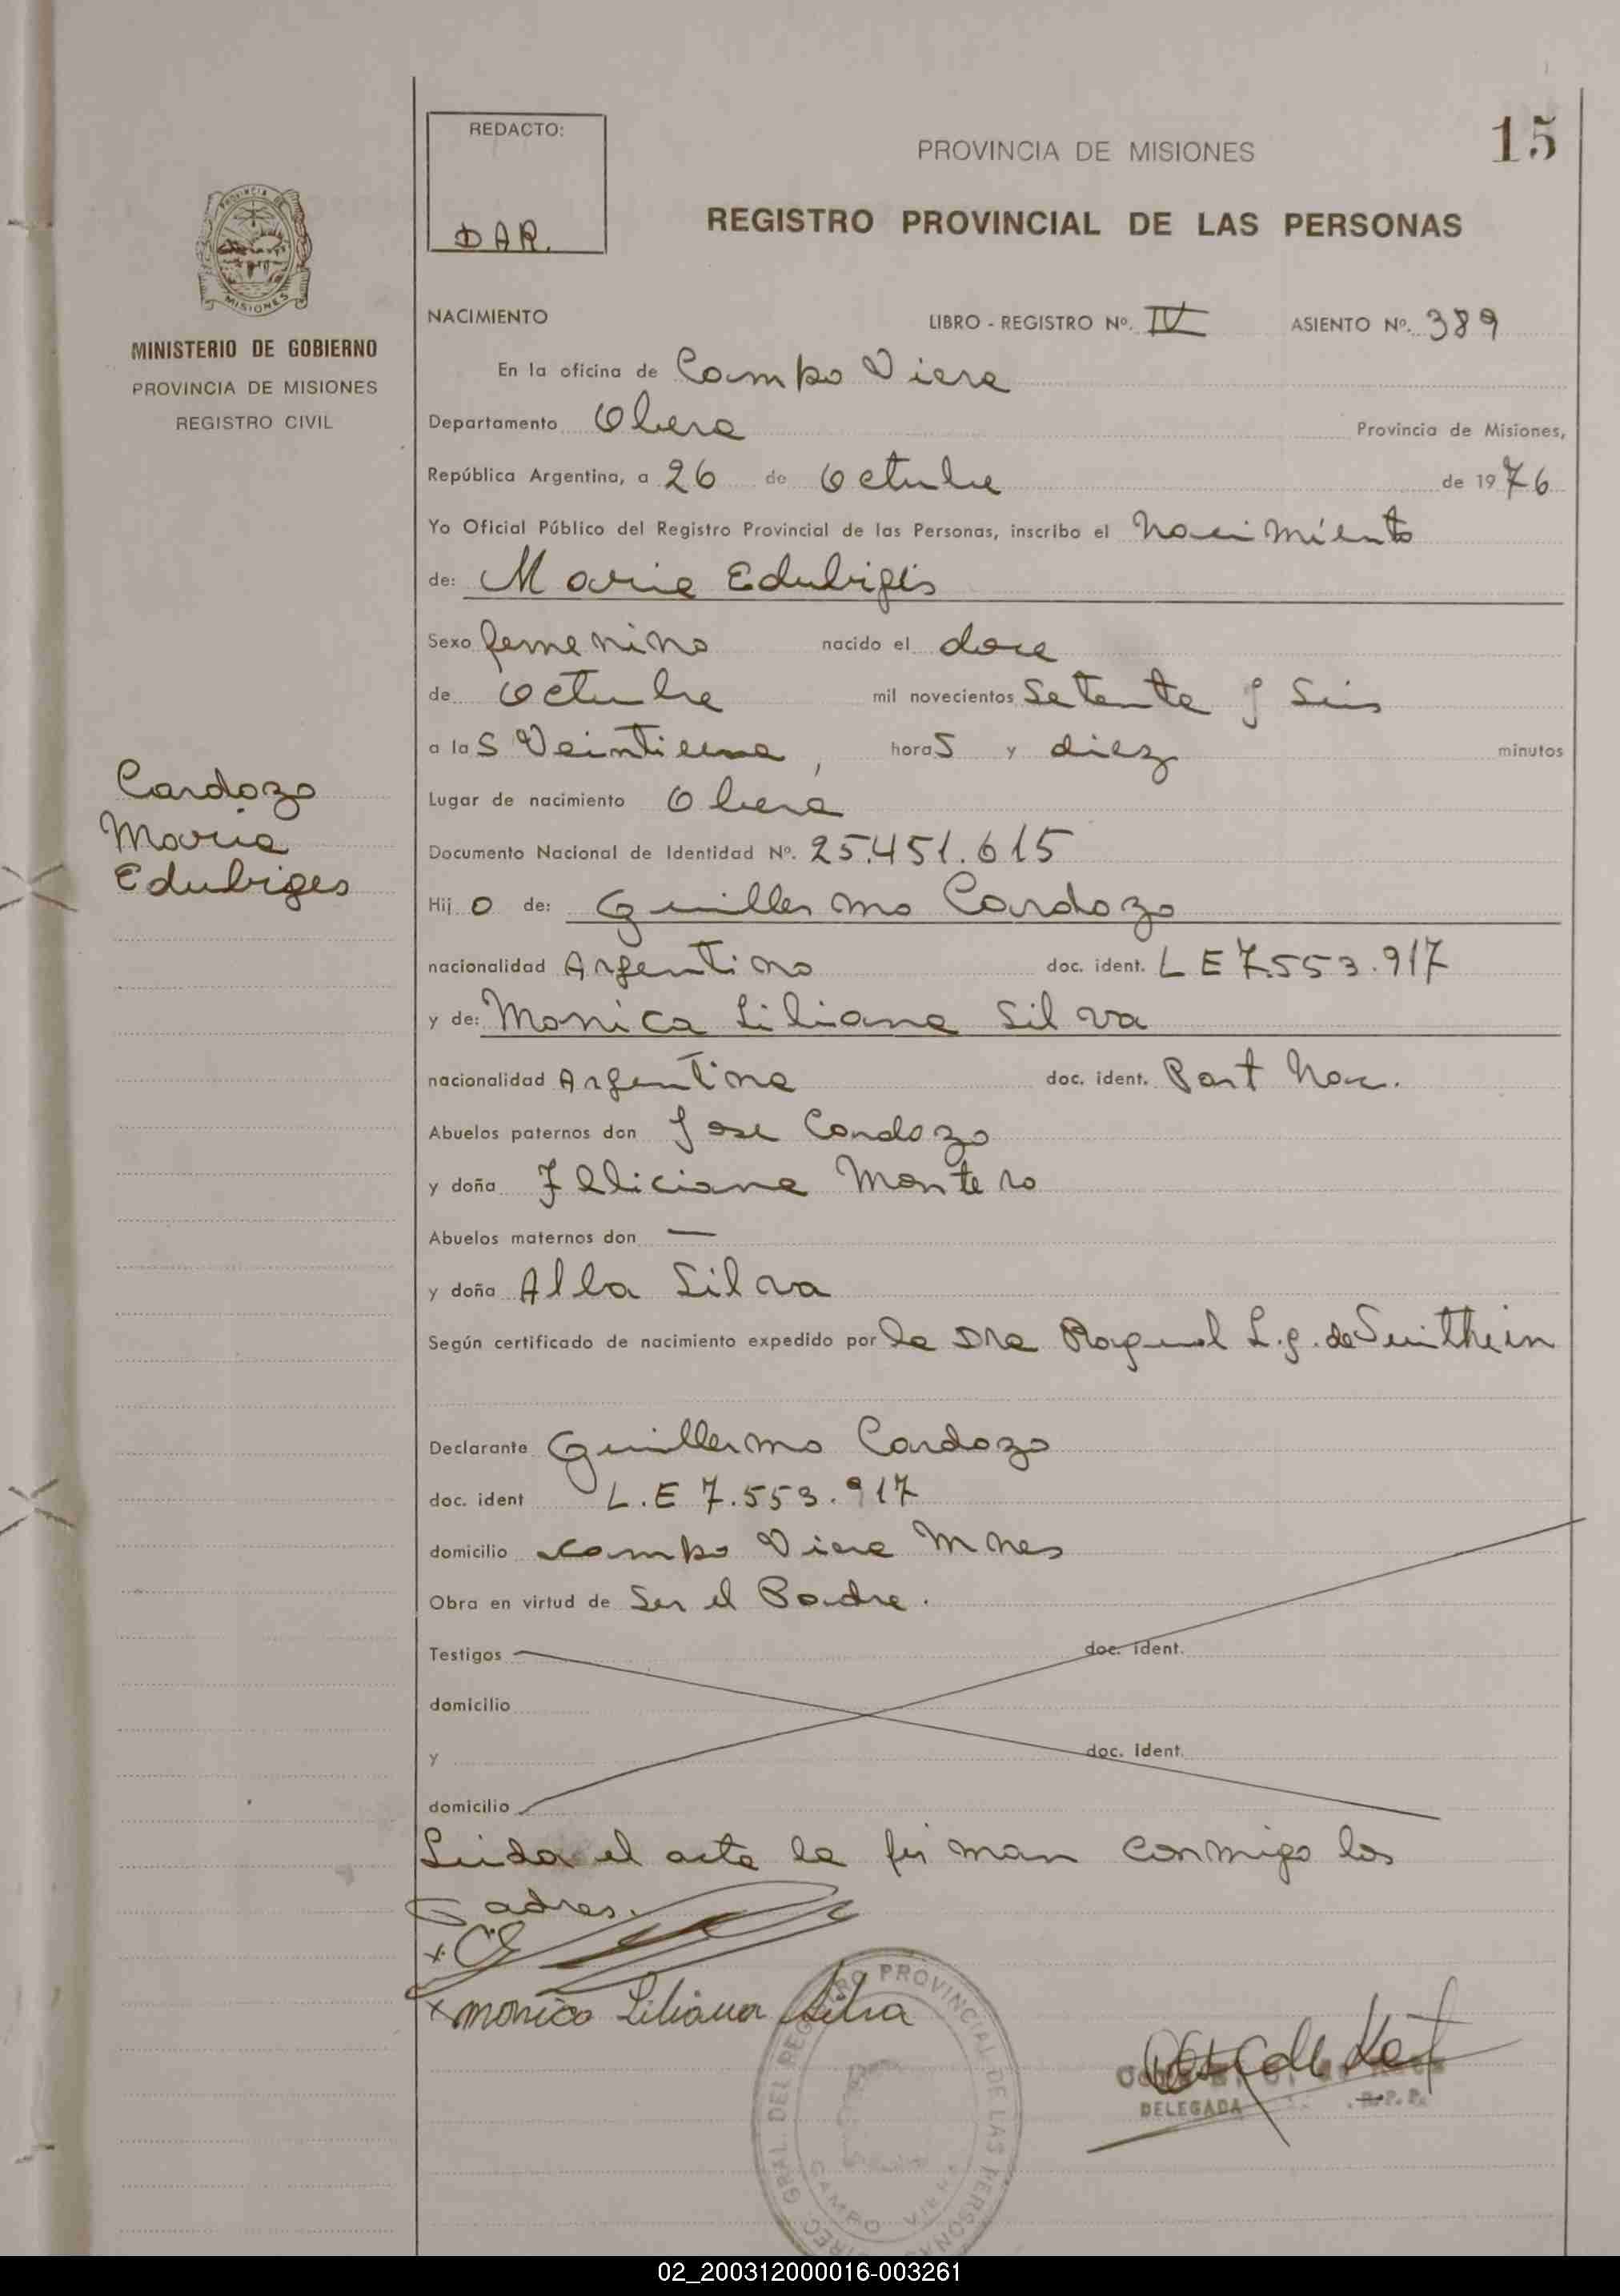 15
REDACTO:
DAR.
PROVINCIA DE MISIONES
REGISTRO PROVINCIAL DE LAS PERSONAS
PROVINCIA DE
MISIONES
MINISTERIO DE GOBIERNO
PROVINCIA DE MISIONES
REGISTRO CIVIL
Cardozo
Maria
Edubiges
NACIMIENTO LIBRO - REGISTRO Nº. IV ASIENTO Nº. 389
En la oficina de Campo Viera
Departamento Obera Provincia de Misiones,
República Argentina, a 26 de Octubre de 1976
Yo Oficial Público del Registro Provincial de las Personas, inscribo el Nacimiento
de: Maria Edubigis
Sexo femenino nacido el doce
de Octubre mil novecientos Setenta y Seis
a las Veintiuna, horas y diez minutos
Lugar de nacimiento Obera
Documento Nacional de Identidad Nº. 25.451.615
Hijo de: Guillermo Cardozo
nacionalidad Argentino doc. ident. L E 7.553.917
y de: Monica Liliana Silva
nacionalidad Argentina doc. ident. Part Nac.
Abuelos paternos don Jose Cardozo
y doña Feliciana Montero
Abuelos maternos don —
y doña Alba Silva
Según certificado de nacimiento expedido por la Dra Raquel L.g. de
Declarante Guillermo Cardozo
doc. ident L.E 7.553.917
domicilio Campo Viera Mnes
Obra en virtud de Ser el Padre.
Testigos doc. ident.
domicilio
y doc. ident.
domicilio
Leida el acta la firman conmigo los
Padres.
x
x monica Liliana Silva
DIREC. GRAL. DEL REGISTRO PROVINCIAL DE LAS PERSONAS
CAMPO VIERA
DELEGADA R.P.P.
02_200312000016-003261